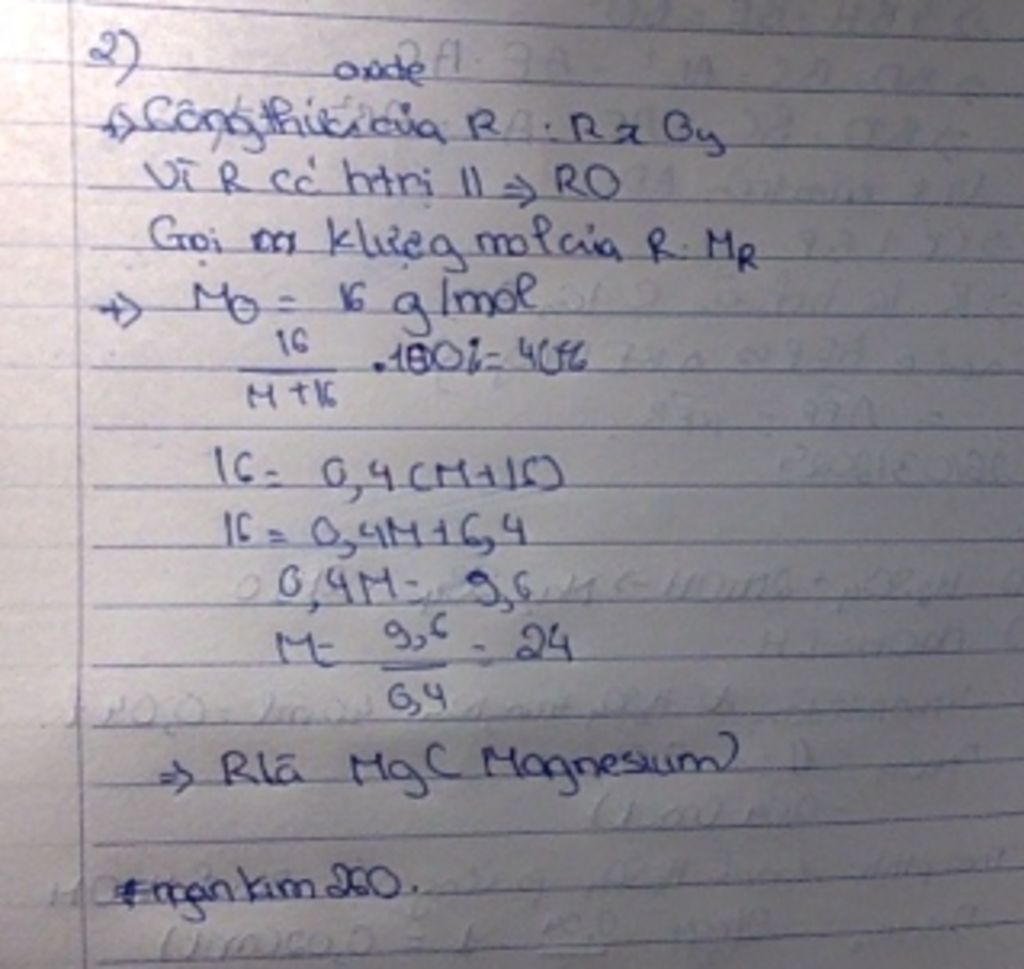 2)
oxide
=> Công thức của R : RxOy
Vì R có htrị II => RO
Gọi klượng mol của R : MR
=> MO = 16 g/mol
16/(M+16) .100% = 40%
16 = 0,4(M+16)
16 = 0,4M+6,4
0,4M = 9,6
M = 9,6/0,4 = 24
=> R là Mg (Magnesium)
#ngankim260.